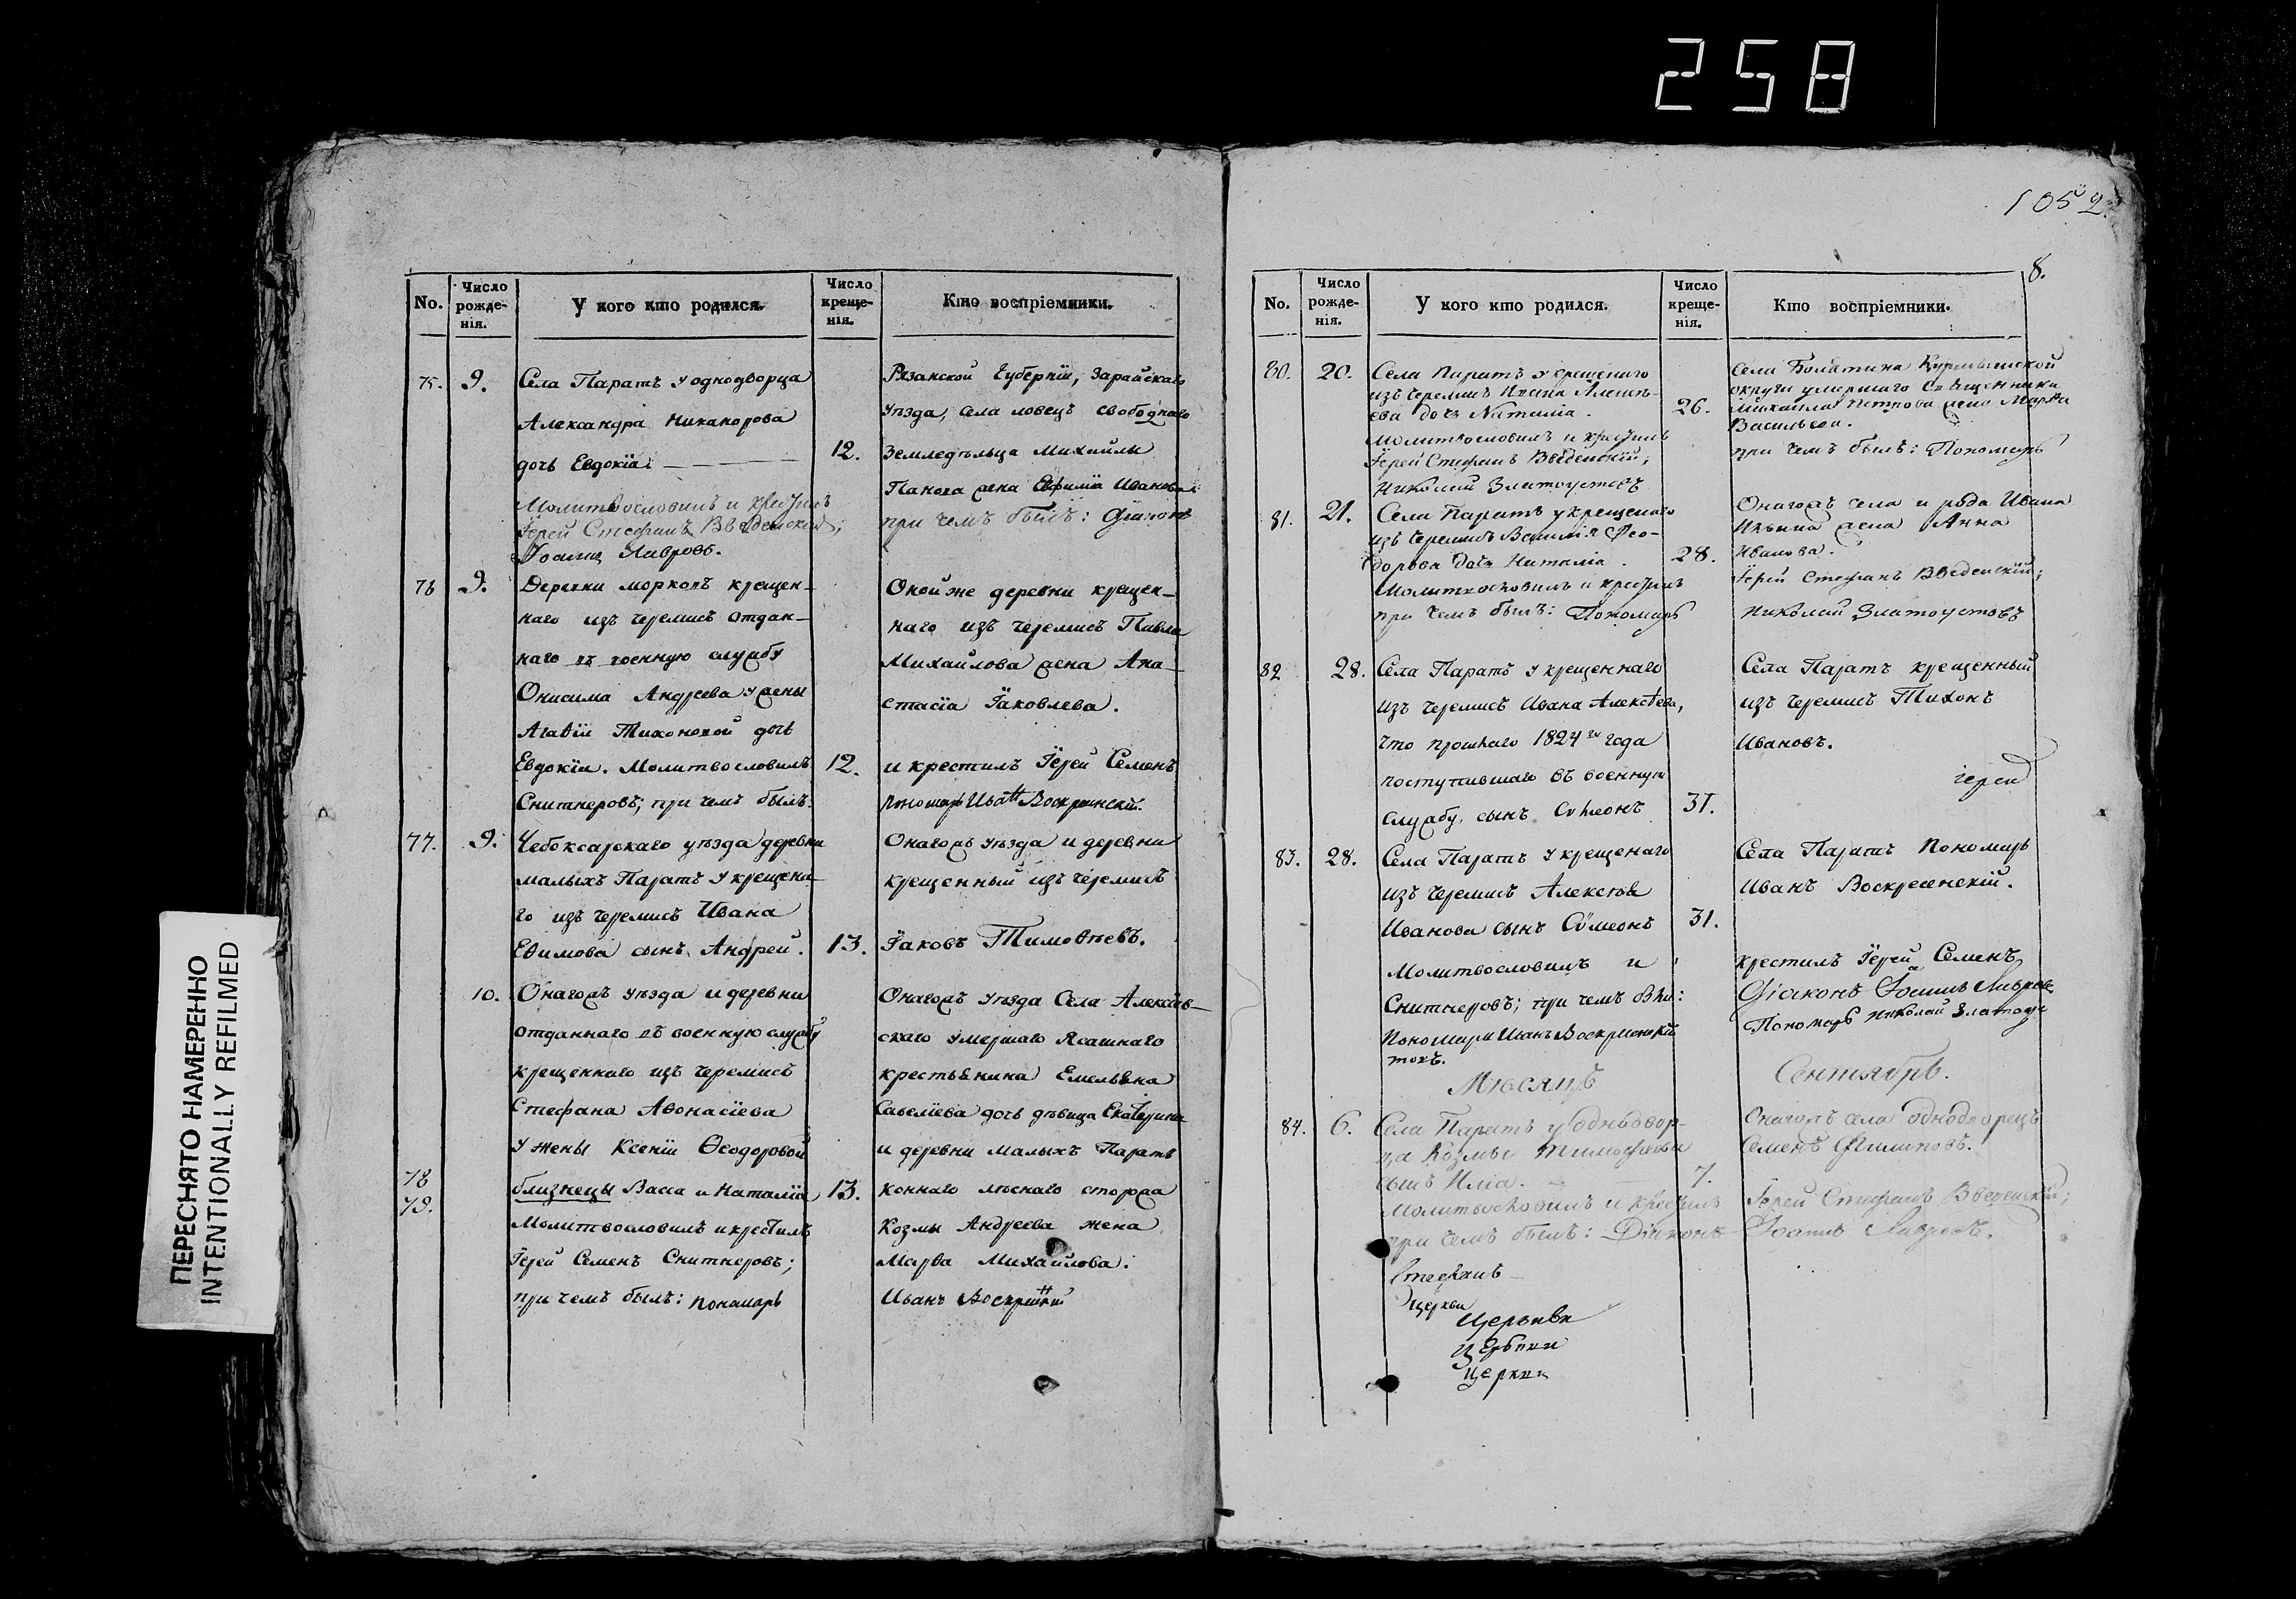 258
1052
8.
ПЕРЕСНЯТО НАМЕРЕННО
INTENTIONALLY REFILMED
No.
Число рожденія.
У кого кто родился.
Число крещенія.
Кто воспріемники.
75. 9.
Села Паратъ у однодворца
Александра Никанорова
дочь Евдокіа.
Молитвословилъ и крестилъ
Іерей Стефанъ Введенскій;
Іоаннъ Лавровъ.
12.
Рязанской Губерніи, Зарайскаго
уѣзда, села ловецъ свободнаго
Земледѣльца Михайлы
Панова жена Евфимія Иванова.
при чемъ былъ: Діаконъ
76 9.
Деревни морковъ крещен-
наго изъ черемисъ отдан-
наго въ военную службу
Онисима Андреева у жены
Агаѳіи Тихоновой дочь
Евдокіа. Молитвословилъ
Снитнеровъ; при чемъ былъ:
12.
Оной же деревни крещен-
наго изъ черемисъ Павла
Михайлова жена Ана-
стасіа Іаковлева.
и крестилъ Іерей Семенъ
Пономарь Иванъ Воскресенскій.
77. 9.
Чебоксарскаго уѣзда деревни
малыхъ Паратъ у крещена-
го изъ черемисъ Ивана
Еѳимова сынъ Андрей.
13.
Онагожъ уѣзда и деревни
крещенный изъ черемисъ
Іаковъ Тимоѳѣевъ.
10.
Онагожъ уѣзда и деревни
отданнаго въ военную службу
крещеннаго изъ черемисъ
Стефана Аѳонасіева
у жены Ксеніи Ѳеодоровой
78
79.
близнецы Васса и Наталіа,
Молитвословилъ и крестилъ
Іерей Семенъ Снитнеровъ;
при чемъ былъ: пономарь
13.
Онагожъ уѣзда Села Алексѣев-
скаго умершаго Ясашнаго
крестьянина Емельяна
Савелiева дочь дѣвица Екатерина
и деревни малыхъ Паратъ
коннаго лѣснаго сторжа
Козмы Андреева жена
Марѳа Михайлова.
Иванъ Воскресенскій
No.
Число рожденія.
У кого кто родился.
Число крещенія.
Кто воспріемники.
80. 20.
Села Паратъ у крещенаго
изъ черемисъ Ивана Алексѣ-
ева дочь Наталіа.
Молитвословилъ и крестилъ
Іерей Стефанъ Введенскій;
Николай Златоустовъ
26.
округи умершаго Священника
Михаила Петрова жена Марѳа
Васильева.
при чемъ былъ: Пономарь
81. 21.
Села Паратъ у крещенаго
изъ черемисъ Василіа Ѳео-
дорова дочь Наталіа.
Молитвословилъ и крестилъ
при чемъ былъ: Пономарь
28.
Онагожъ села и рода Ивана
жена Анна
Иванова.
Іерей Стефанъ Введенскій;
Николай Златоустовъ
82 28.
Села Паратъ у крещеннаго
изъ черемисъ Ивана Алексѣева,
что прошлаго 1824го года
поступившаго въ военную
службу, сынъ Сѵмеонъ
31.
Села Паратъ крещенный
изъ черемисъ Тихонъ
Ивановъ.
іерей
83. 28.
Села Паратъ у крещенаго
изъ черемисъ Алексѣя
Иванова сынъ Сѵмеонъ
Молитвословилъ и
Снитнеровъ; при чемъ были:
Пономари Иванъ Воскресенскій
товъ.
31.
Села Паратъ Пономарь
Иванъ Воскресенскій.
крестилъ Іерей Семенъ
Діаконъ Іоаннъ Лавровъ
Пономарь Николай Златоус
Мѣсяцъ Сентябрь.
84. 6.
Села Паратъ у однодвор-
ца Козмы Тимофеева
сынъ Илiа.
Молитвословилъ и крестилъ
при чемъ былъ: Діаконъ
7.
Онагожъ села однодворецъ
Семенъ Филиповъ.
Іерей Стефанъ Введенскій;
Іоаннъ Лавровъ.
Стефанъ
церкви
Церкви